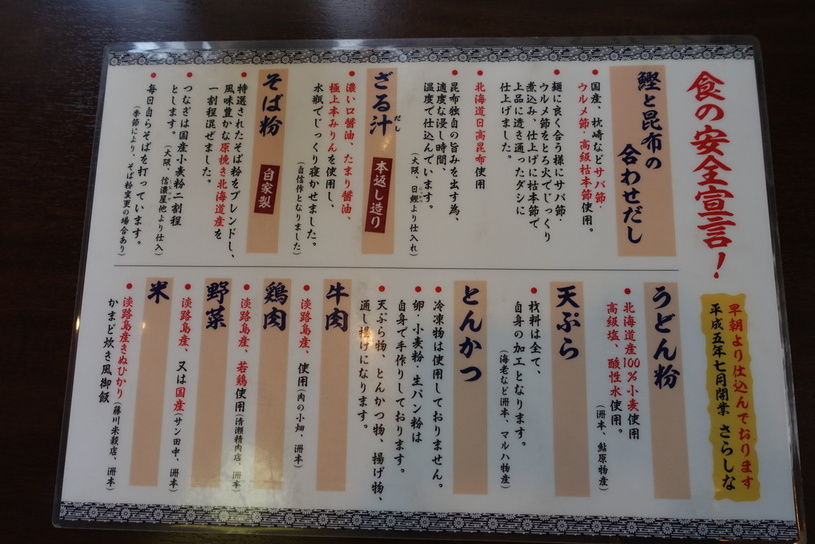 食の安全宣言!
早朝より仕込んでおります
平成五年七月開業 さらしな
鰹と昆布の
合わせだし
●国産、枕崎などサバ節・
ウルメ節・高級枯本節使用。
●麺に良く合う様にサバ節・
ウルメ節をとろ火でじっくり
煮込み、仕上げに枯本節で
上品に透き通ったダシに
仕上げました。
●北海道日高昆布使用
●昆布独自の旨みを出す為、
適度な浸し時間、
温度で仕込んでいます。
(大阪、日鰹より仕入れ)
ざる汁 だし
本返し造り
●濃い口醤油、たまり醤油、
極上本みりんを使用し、
水瓶でじっくり寝かせました。
(自信作となりました)
そば粉
自家製
●特選されたそば粉をブレンドし、
風味豊かな原挽き北海道産を
一割程混ぜました。
●つなぎは国産小麦粉二割程
とします。(大阪、信濃屋他より仕入)
●毎日自らそばを打っています。
(季節により、そば粉変更の場合あり)
うどん粉
●北海道産100%小麦使用
高級塩、酸性水使用。
(洲本、鮎原物産)
天ぷら
●材料は全て、
自身の加工となります。
(海老など洲本、マルハ物産)
とんかつ
●冷凍物は使用しておりません。
●卵・小麦粉・生パン粉は
自身で手作りしております。
●天ぷら物、とんかつ物、揚げ物、
通し揚げになります。
牛肉
●淡路島産、使用(肉の小畑、洲本)
鶏肉
●淡路島産、若鶏使用(清瀬精肉店、洲本)
野菜
●淡路島産、又は国産(サン田中、洲本)
米
●淡路島産きぬひかり(藤川米穀店、洲本)
かまど炊き風御飯